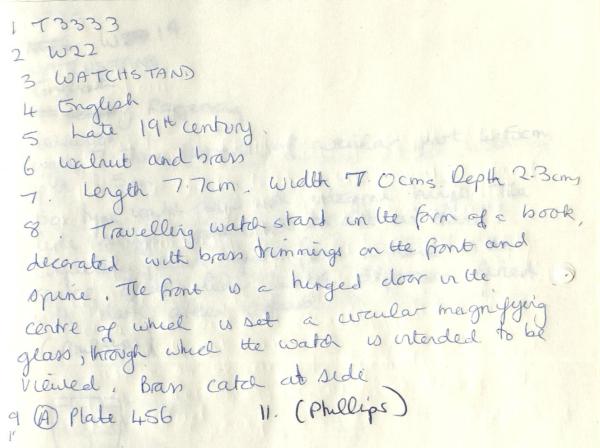 1 T3333
2 W22
3 WATCHSTAND
4 English
5 Late 19th century.
6 Walnut and brass
7. Length 7.7cm. Width 7.0cms. Depth 2.3cms
8. Travelling watch stand in the form of a book,
decorated with brass trimmings on the front and
spine. The front is a hinged door in the
centre of which is set a circular magnifying
glass, through which the watch is intended to be
viewed. Brass catch at side
9 (A) Plate 456 11. (Phillips)